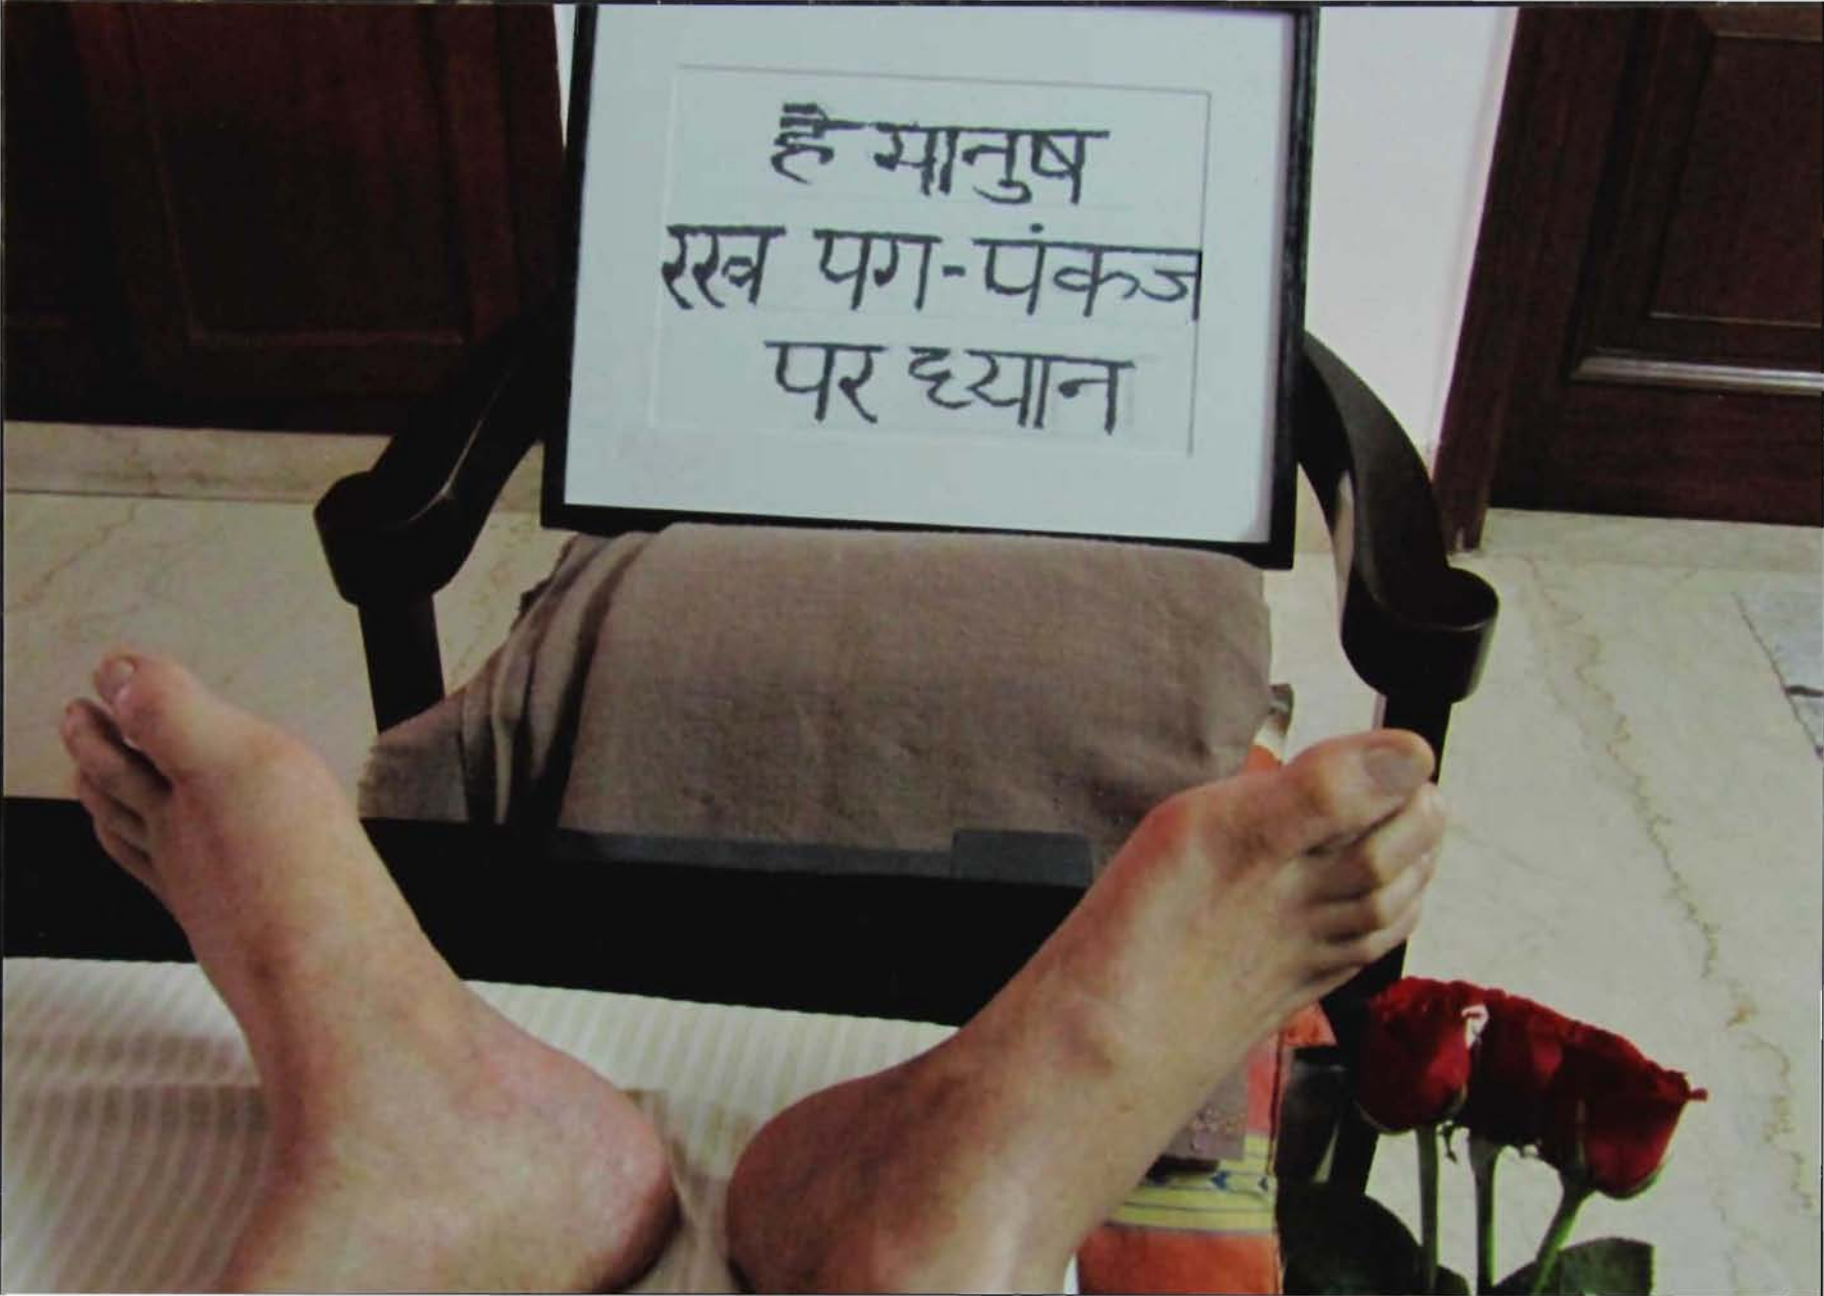 है मानुष
रख पग-पंकज
पर ध्यान